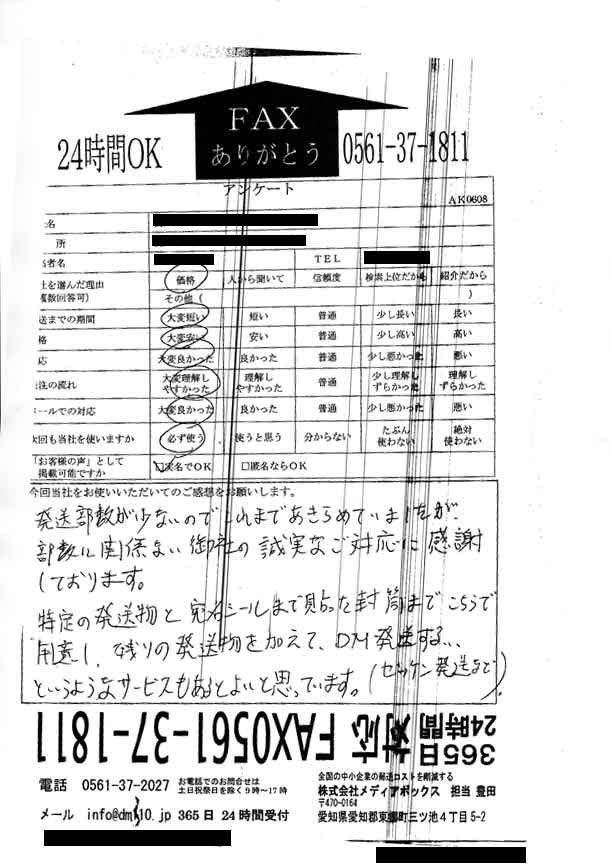 FAX
ありがとう
24時間OK
0561-37-1811
アンケート
AK0608
名
所
者名
TEL
を選んだ理由
数回答可)
価格
人から聞いて
信頼度
検索上位だから
紹介だから
その他 (
)
送までの期間
大変短い
短い
普通
少し長い
長い
格
大変安い
安い
普通
少し高い
高い
応
大変良かった
良かった
普通
少し悪かった
悪い
注の流れ
大変理解し
やすかった
理解し
やすかった
普通
少し理解し
ずらかった
理解し
ずらかった
ールでの対応
大変良かった
良かった
普通
少し悪かった
悪い
次回も当社を使いますか
必ず使う
使うと思う
分からない
たぶん
使わない
絶対
使わない
「お客様の声」として
掲載可能ですか
☑実名でOK
□匿名ならOK
今回当社をお使いいただいてのご感想をお願いします。
発送部数が少ないのでこれまであきらめていましたが、
部数に関係ない御社の誠実なご対応に感謝
しております。
特定の発送物と宛名シールまで貼った封筒までこちらで
用意し、残りの発送物を加えて、DM発送する...
というようなサービスもあるとよいと思っています。(セッケン発送など)
365日
24時間
対応 FAX0561-37-1811
電話 0561-37-2027
お電話でのお問合せは
土日祝祭日を除く9時~17時
メール info@dm110.jp 365日24時間受付
全国の中小企業の郵送コストを削減する
株式会社メディアボックス 担当 豊田
〒470-0164
愛知県愛知郡東郷町三ツ池4丁目5-2